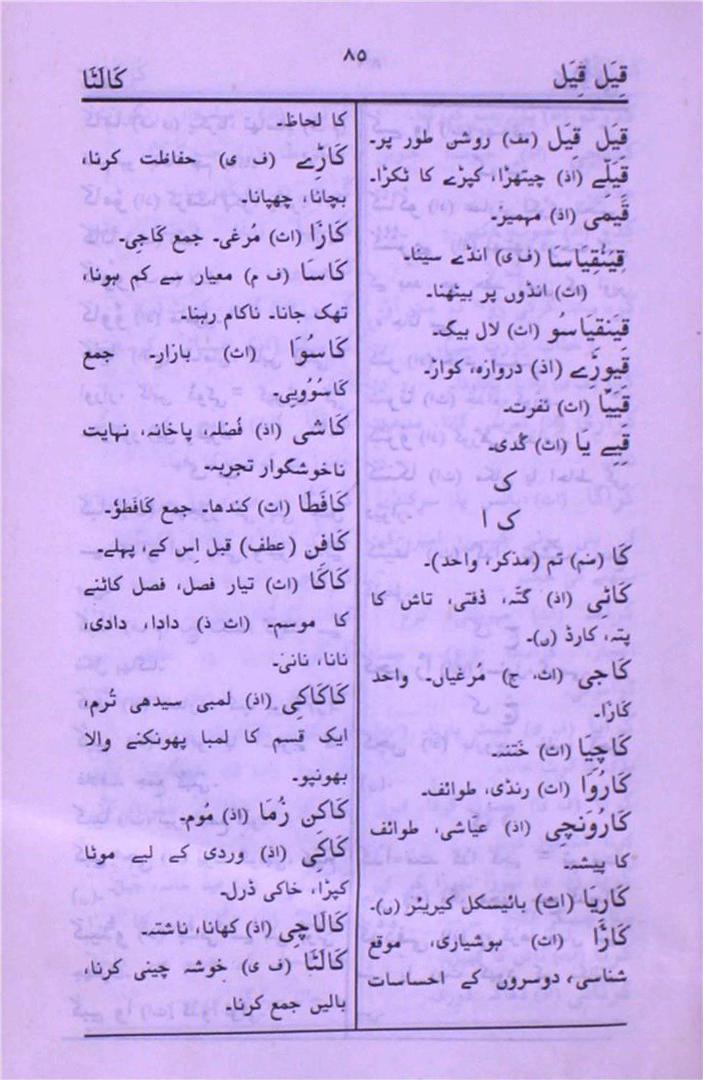 قِیَل قِیَل
۸۵
کَالَتَا
قِیَل قِیَل (مف) روشن طور پر۔
قَیَلّے (اذ) چیتھڑا، کپڑے کا ٹکڑا۔
قَیمی (اذ) مہمیز۔
قِیَنْقِیَاسا (ف ی) انڈے سینا۔
(اث) انڈوں پر بیٹھنا۔
قِیَنقِیاسُو (اث) لال بیگ۔
قِیورَے (اذ) دروازہ، کواڑ۔
قِیَیا (اث) نفرت۔
قِیے یا (اث) گدی۔
ک
ک ا
کَا (ضم) تم (مذکر، واحد)۔
کَاٹِی (اذ) گتّہ، دفتی، تاش کا
پتہ، کارڈ (ں)۔
کَاجی (اث، ج) مُرغیاں۔ واحد
کازَا۔
کَاچِیَا (اث) ختنہ۔
کَارُوَا (اث) رنڈی، طوائف۔
کَارُوَنچِی (اذ) عیّاشی، طوائف
کا پیشہ۔
کَارِیَا (اث) بائیسکل کیریئر (ں)۔
کَازَّا (اث) ہوشیاری، موقع
شناسی، دوسروں کے احساسات
کا لحاظ۔
کَاڑِے (ف ی) حفاظت کرنا،
بچانا، چھپانا۔
کَازَا (اث) مُرغی۔ جمع کَاجِی۔
کَاسَا (ف م) معیار سے کم ہونا،
تھک جانا۔ ناکام رہنا۔
کَاسُوا (اث) بازار۔ جمع
کَاسُوونِی۔
کَاشی (اذ) فُضلہ، پاخانہ، نہایت
ناخوشگوار تجربہ۔
کَافَطَا (اث) کندھا۔ جمع کَافَطُوْ۔
کَافِن (عطف) قبل اِس کے، پہلے۔
کَاکَا (اث) تیار فصل، فصل کاٹنے
کا موسم۔ (اث ذ) دادا، دادی،
نانا، نانی۔
کَاکَاکِی (اذ) لمبی سیدھی تُرم،
ایک قسم کا لمبا پھونکنے والا
بھونپو۔
کَاکِن زُمَا (اذ) مُوم۔
کَاکِی (اذ) وردی کے لیے موٹا
کپڑا، خاکی ڈرل۔
کَالَاچِی (اذ) کھانا، ناشتہ۔
کَالَتَا (ف ی) خوشہ چینی کرنا،
بالیں جمع کرنا۔